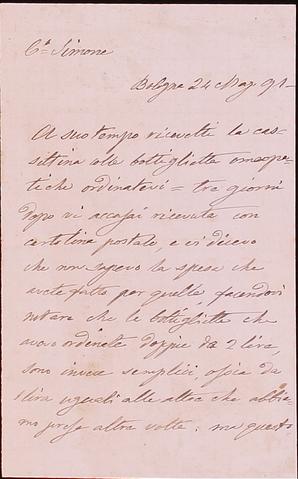 C.ª Simone
Bologna 24 Mag 91
A suo tempo ricevetti la cas-
settina alle bottigliette omeopa-
tiche ordinatevi = tre giorni
dopo vi accusai ricevuta con
cartolina postale, e vi dicevo
che non sapevo la spesa che
avete fatto per quelle, facendovi
notare che le bottigliette che
avevo ordinate doppie da 2 lire,
sono invece semplici ossia da
1 lira uguali alle altre che abbia-
mo prese altre volte: ma questo